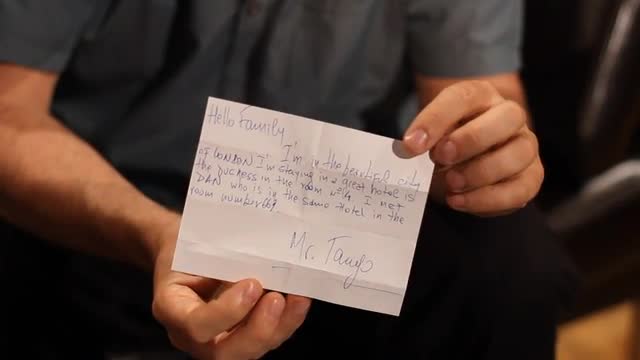 Hello Family
I'm in the beautiful city
of LONDON I'm staying in a great hotel is
the DUCHESS in the room I met
DAN who is in the same Hotel in the
room number
Mr. Tango